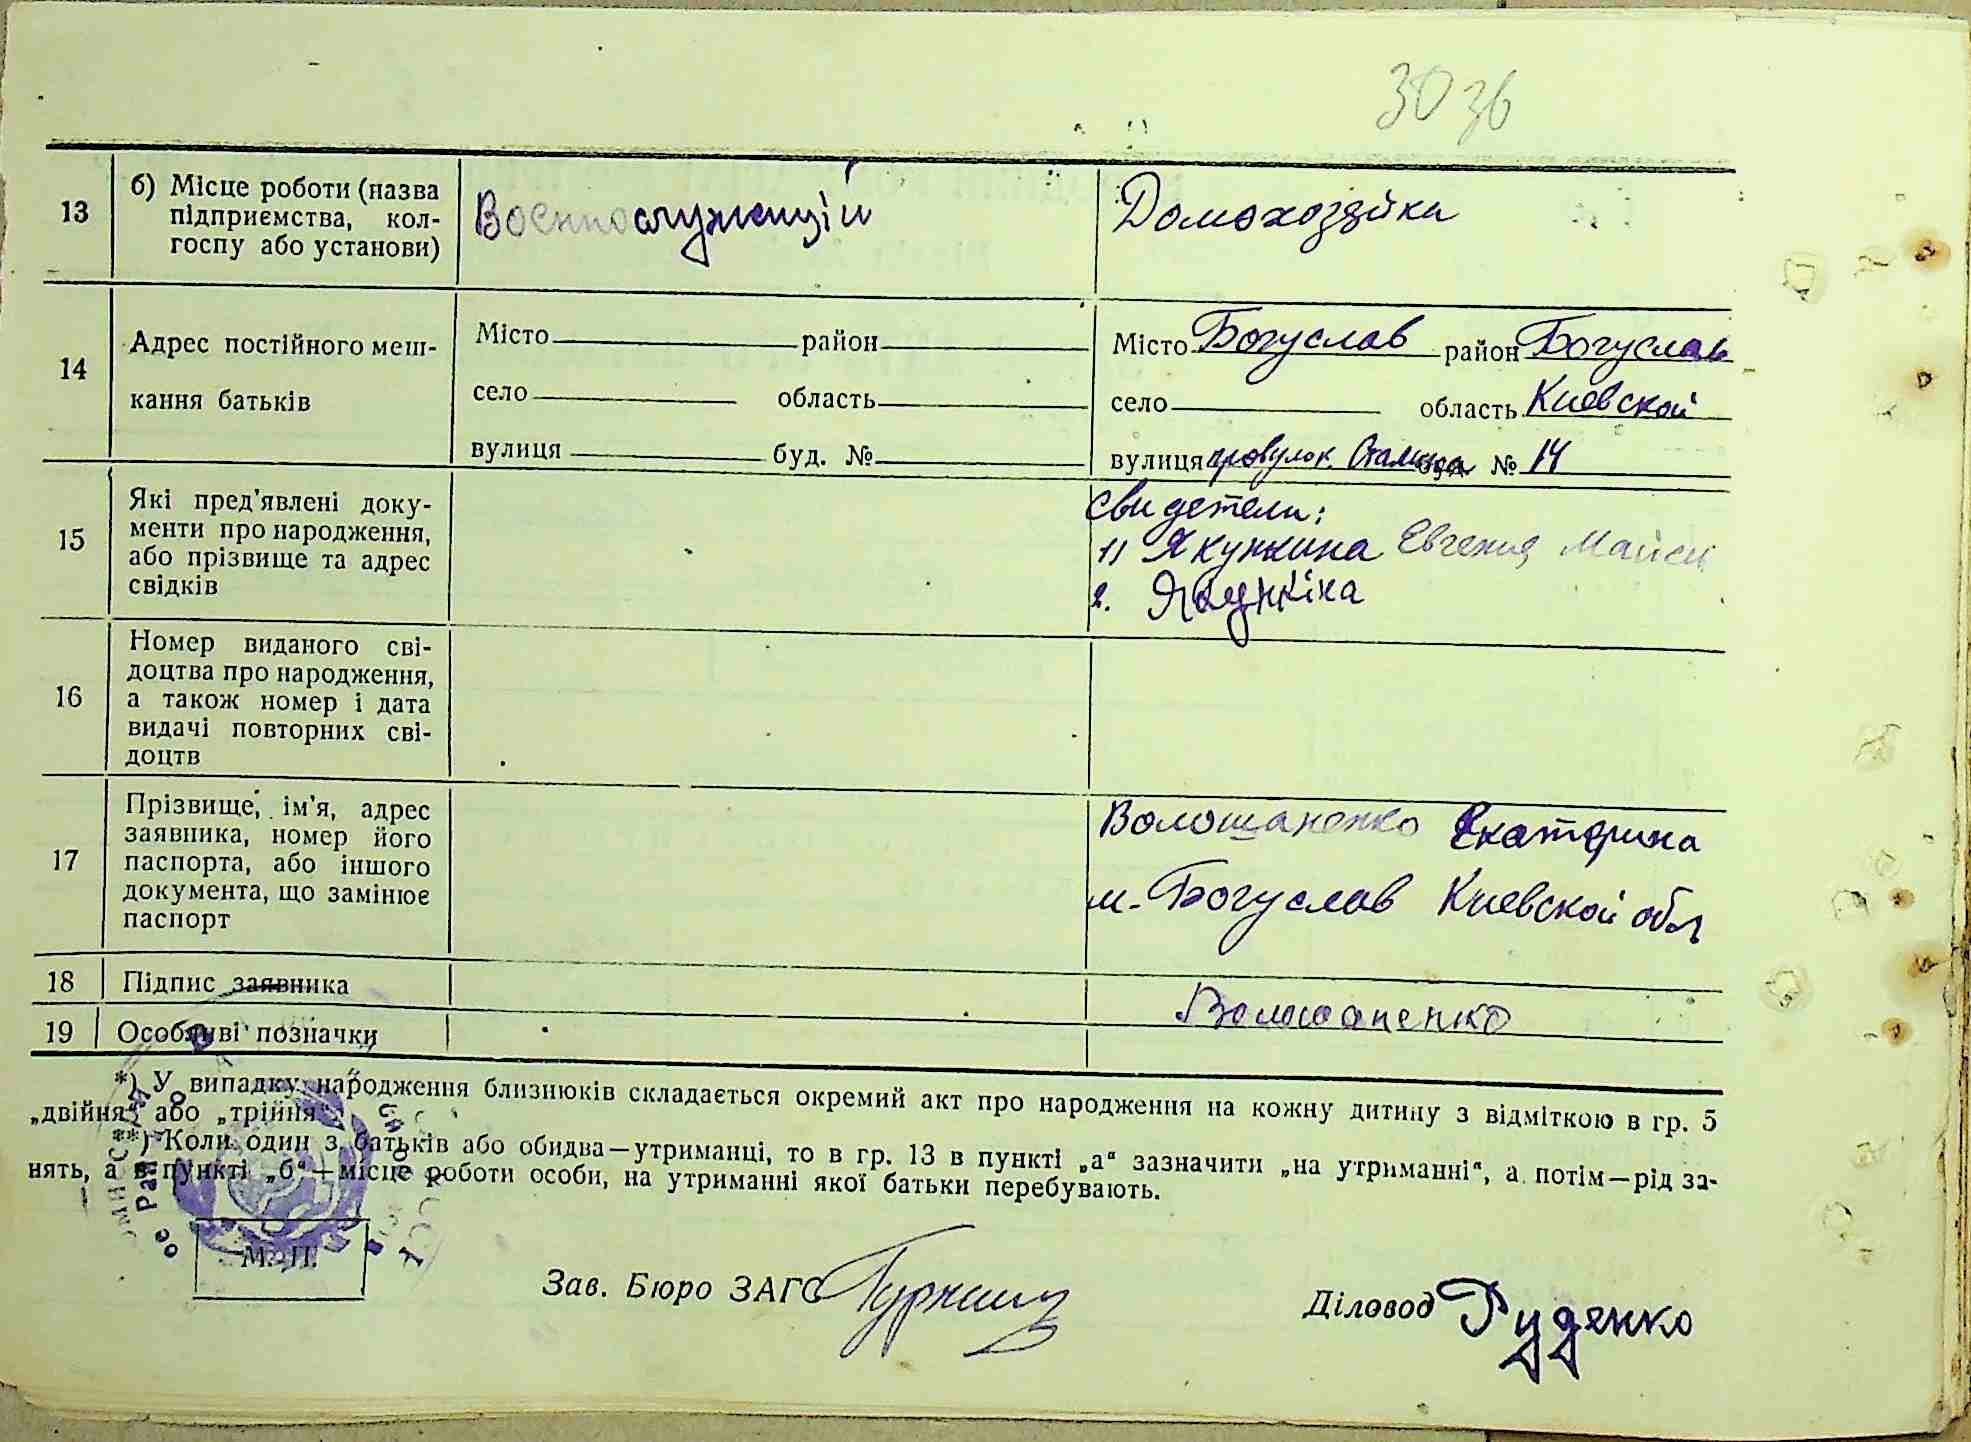 30 зв
13 б) Місце роботи (назва підприємства, кол-госпу або установи) Военнослужищій Домохозяйка
14 Адрес постійного меш-кання батьків
Місто район Місто Богуслав район Богуслав
село область село область Киевской
вулиця буд. № вулиця провулок. Сталина буд. № 14
15 Які пред'явлені доку-менти про народження, або прізвище та адрес свідків
Свидетели:
1) Якункина Евгения
2. Якункіна
16 Номер виданого сві-доцтва про народження, а також номер і дата видачі повторних сві-доцтв
17 Прізвище, ім'я, адрес заявника, номер його паспорта, або іншого документа, що замінює паспорт
Волошаненко Екатерина
м. Богуслав Киевской обл
18 Підпис заявника Волошаненко
19 Особливі позначки
*) У випадку народження близнюків складається окремий акт про народження на кожну дитину з відміткою в гр. 5
„двійня" або „трійня".
**) Коли один з батьків або обидва—утриманці, то в гр. 13 в пункті „а" зазначити „на утриманні", а потім—рід за-
нять, а в пункті „б"—місце роботи особи, на утриманні якої батьки перебувають.
М. П.
Зав. Бюро ЗАГС
Діловод Руденко